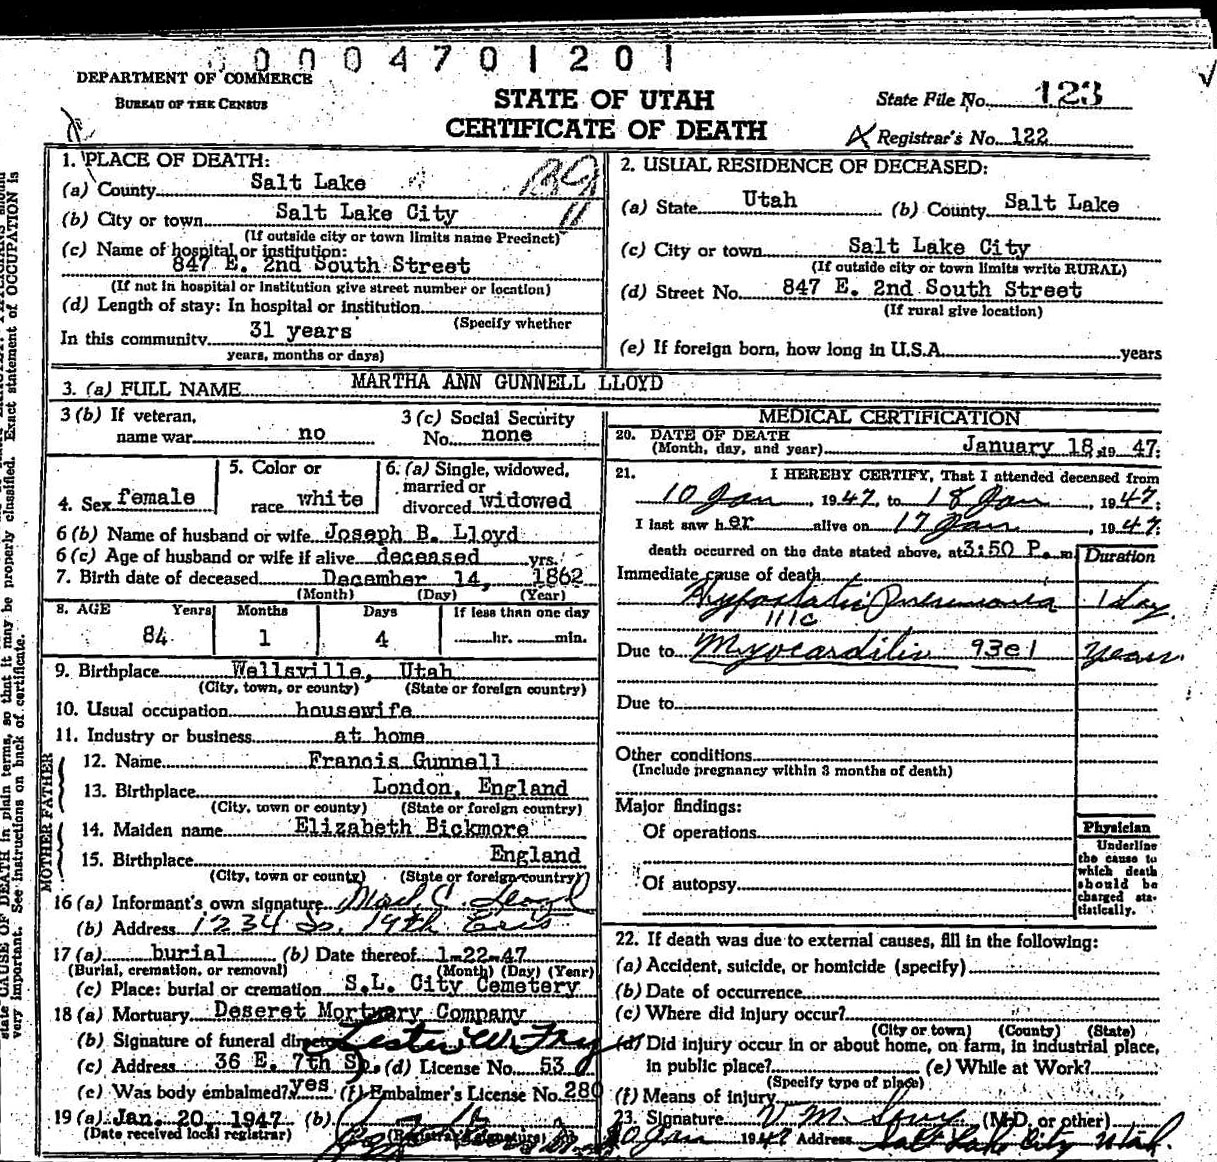 0 0 0 0 4 7 0 1 2 0 1
DEPARTMENT OF COMMERCE
BUREAU OF THE CENSUS
STATE OF UTAH
CERTIFICATE OF DEATH
State File No. 123
Registrar's No. 122
1. PLACE OF DEATH:
(a) County Salt Lake
(b) City or town Salt Lake City
(If outside city or town limits name Precinct)
(c) Name of hospital or institution:
847 E. 2nd South Street
(If not in hospital or institution give street number or location)
(d) Length of stay: In hospital or institution
(Specify whether
In this community 31 years
years, months or days)
2. USUAL RESIDENCE OF DECEASED:
(a) State Utah (b) County Salt Lake
(c) City or town Salt Lake City
(If outside city or town limits write RURAL)
(d) Street No. 847 E. 2nd South Street
(If rural give location)
(e) If foreign born, how long in U.S.A. years
3. (a) FULL NAME MARTHA ANN GUNNELL LLOYD
3 (b) If veteran,
name war no
3 (c) Social Security
No. none
4. Sex female
5. Color or
race white
6. (a) Single, widowed,
married or
divorced widowed
6 (b) Name of husband or wife Joseph B. Lloyd
6 (c) Age of husband or wife if alive deceased yrs.
7. Birth date of deceased December 14, 1862
(Month) (Day) (Year)
8. AGE Years Months Days If less than one day
84 1 4 hr. min.
9. Birthplace Wellsville, Utah
(City, town, or county) (State or foreign country)
10. Usual occupation housewife
11. Industry or business at home
FATHER
12. Name Francis Gunnell
13. Birthplace London, England
(City, town or county) (State or foreign country)
MOTHER
14. Maiden name Elizabeth Bickmore
15. Birthplace England
(City, town or county) (State or foreign country)
16 (a) Informant's own signature
(b) Address 1234 So. 19th East
17 (a) burial (b) Date thereof 1-22-47
(Burial, cremation, or removal) (Month) (Day) (Year)
(c) Place: burial or cremation S.L. City Cemetery
18 (a) Mortuary Deseret Mortuary Company
(b) Signature of funeral director Lester W. Fry
(c) Address 36 E. 7th So. (d) License No. 53
(e) Was body embalmed? yes (f) Embalmer's License No. 280
19 (a) Jan. 20, 1947 (b)
(Date received local registrar) (Registrar's signature)
MEDICAL CERTIFICATION
20. DATE OF DEATH
(Month, day, and year) January 18, 19 47;
21. I HEREBY CERTIFY, That I attended deceased from
10 Jan, 1947, to 18 Jan, 1947;
I last saw her alive on 17 Jan, 1947;
death occurred on the date stated above, at 3:50 P. m
Duration
Immediate cause of death
Hypostatic Pneumonia 1 day
111c
Due to Myocarditis 93e1 years.
Due to
Other conditions
(Include pregnancy within 3 months of death)
Major findings:
Of operations
Of autopsy
Physician
Underline
the cause to
which death
should be
charged sta-
tistically.
22. If death was due to external causes, fill in the following:
(a) Accident, suicide, or homicide (specify)
(b) Date of occurrence
(c) Where did injury occur?
(City or town) (County) (State)
(d) Did injury occur in or about home, on farm, in industrial place,
in public place? (e) While at Work?
(Specify type of place)
(f) Means of injury
23. Signature (M.D. or other)
Jan 1947 Address Salt Lake City Utah.
state CAUSE OF DEATH in plain terms, so that it may be properly classified. Exact statement of OCCUPATION is
very important. See instructions on back of certificate.